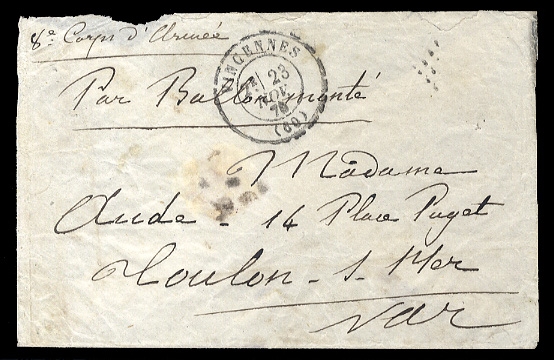 8e Corps d'Armée
VINCENNES
23
NOV.
70
(60)
Par Ballon monté
Madame
Aude - 14 Place Puget
Toulon - s - Mer
Var